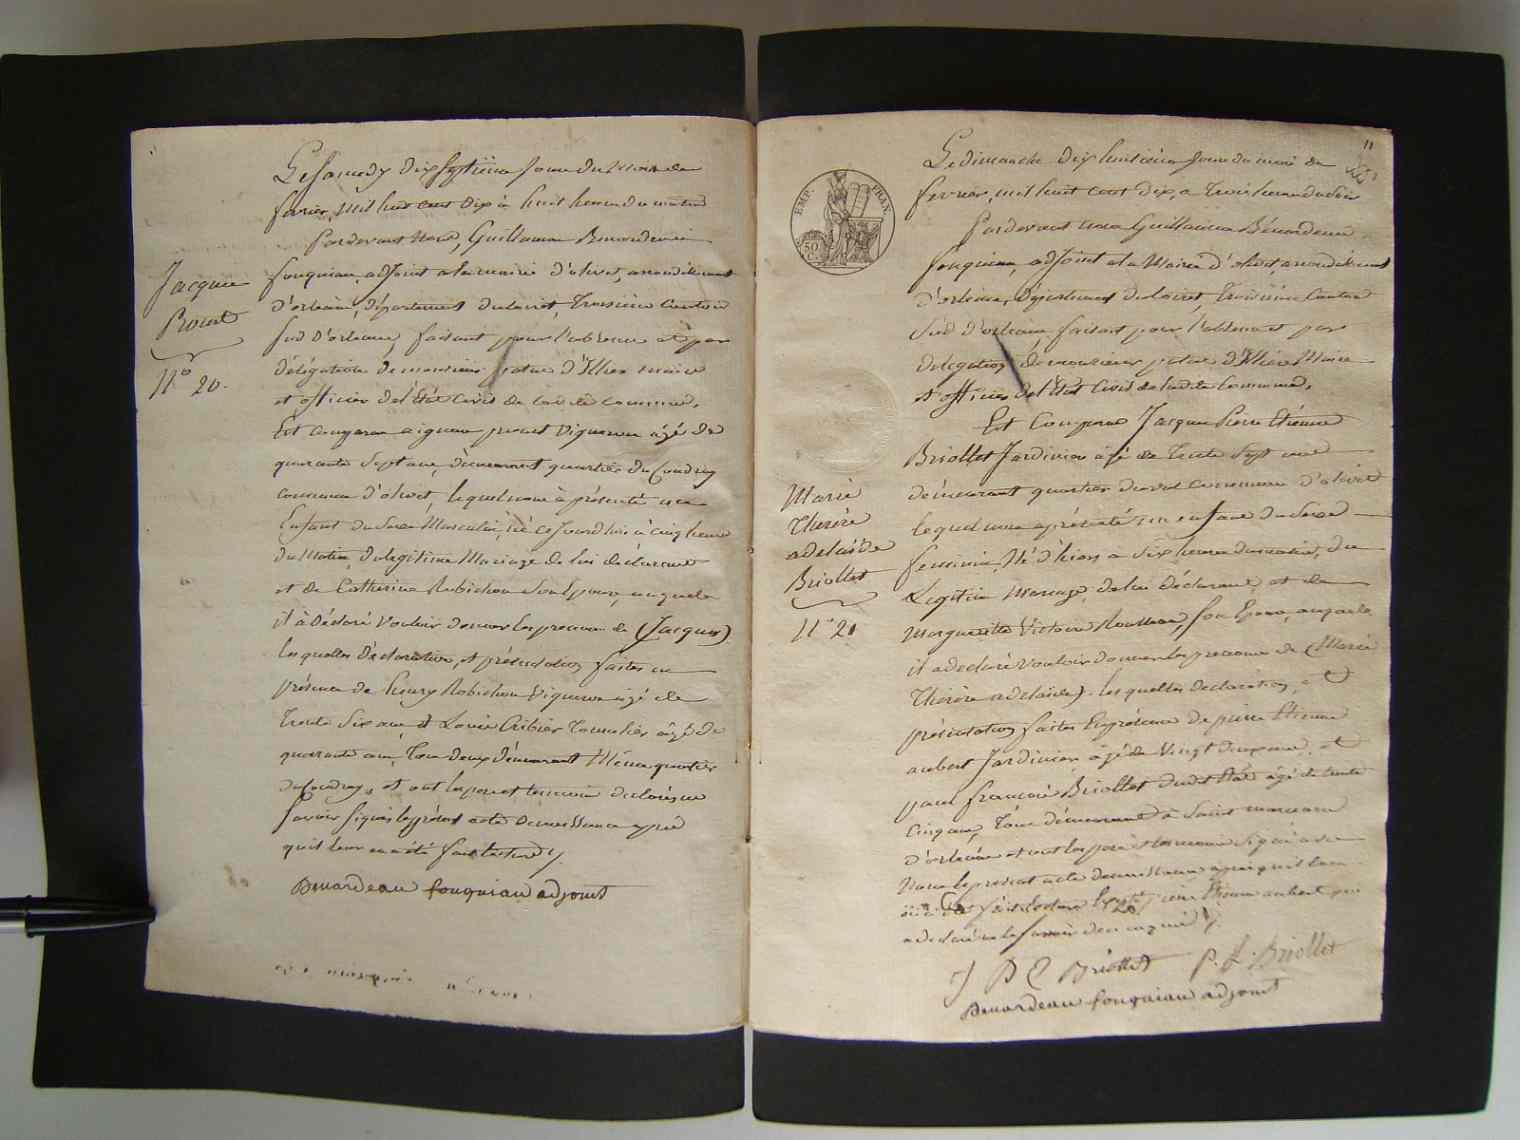 Le samedy dix septiéme Jour du Mois de
fevrier, mil huit cent dix à huit heures du matin
Pardevant Nous, Guillaume Benardeau
fouquiau, adjoint a la mairie d'olivet, arrondissement
d'orleans, Département du loiret, Troisieme Canton
sud d'orleans, faisant pour l'absence et par
délégation de monsieur patas d'Illiers maire
et officier de l'État Civil de la dite Commune.
Est Comparu Vigneron âgé de
quarante Sept ans, demeurant quartier du Coudray
commune d'olivet, lequel nous à présenté un
Enfant du Sexe Masculin, né ce Jourd'hui à cinq heures
du Matin, du legitime Mariage de lui déclarant
et de Catherine Robichon Son Epouse, auquel
il à Déclaré Vouloir donner les prenoms de (Jacques)
les quelles Déclaration, et présentation faites en
présence de Robichon Vigneron âgé de
trente Six ans et Louis Cribier Tonnelier âgé de
quarante ans, Tous deux démeurant Même quartier
du Coudray, et ont les pere et temoins declarés ne
Savoir Signer le présent acte de naissance après
qu'il leur en a été fait lecture ./.
Benardeau fouquiau adjoint
Jacques
N.° 20.
11
EMP. FRAN.
50 C.
Le dimanche dix huitiéme Jour du mois de
fevrier, mil huit cent dix, a Trois heures du Soir
Pardevant nous Guillaume Bénardeau
fouquiau, adjoint a la Mairie d'olivet, arrondissement
d'orleans, Département du loiret, Troisiéme Canton
Sud d'orleans, faisant pour l'absence et par
délégation de monsieur patas d'Illiers Maire
et officier de l'État Civil de la dite Commune.
Est Comparu Jacques Pierre Etienne
Briollet Jardinier âgé de Trente Sept ans
démeurant quartier du val Commune d'olivet
lequel nous a présenté un enfant du Sexe
feminin, Né d'hier a Six heures du matin, du
Legitime Mariage, de lui déclarant, et de
Marguerite Victoire Rousseau, son Epouse, auquel
il a declaré Vouloir donner les prenoms de (Marie
Thérèse adelaide). les quelles declaration, et
présentation faites En présence de pierre Etienne
aubert Jardinier âgé de Vingt deux ans, et
paul françois Briollet âgé de trente
Cinq ans, Tous démeurant à Saint marceau
d'orleans et ont les pere et temoins Signé avec
Nous le present acte de naissance après qu'il leur
en a été fait lecture Excepté pierre Etienne aubert qui
a declaré ne le savoir de ce enquis ./.
J P E Briollet P. f. Briollet
Benardeau fouquiau adjoint
Marie
Thérèse
adelaïde
Briollet
N.° 21